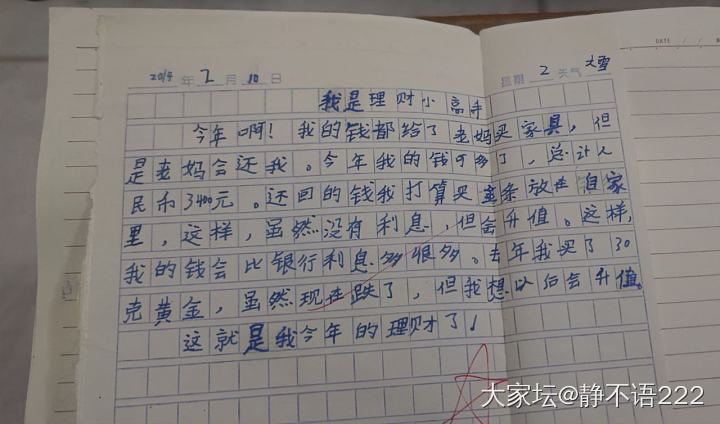 2014年2月10日 星期2天气大雪
DATE
我是理财小高手
今年啊！我的钱都给了老妈买家具，但
是老妈会还我。今年我的钱可多了，总计人
民币3400元。还回的钱我打算买金条放在自家
里，这样，虽然没有利息，但会升值。这样，
我的钱会比银行利息多很多。去年我买了30
克黄金，虽然现在跌了，但我想以后会升值。
这就是我今年的理财了！
大家坛@静不语222